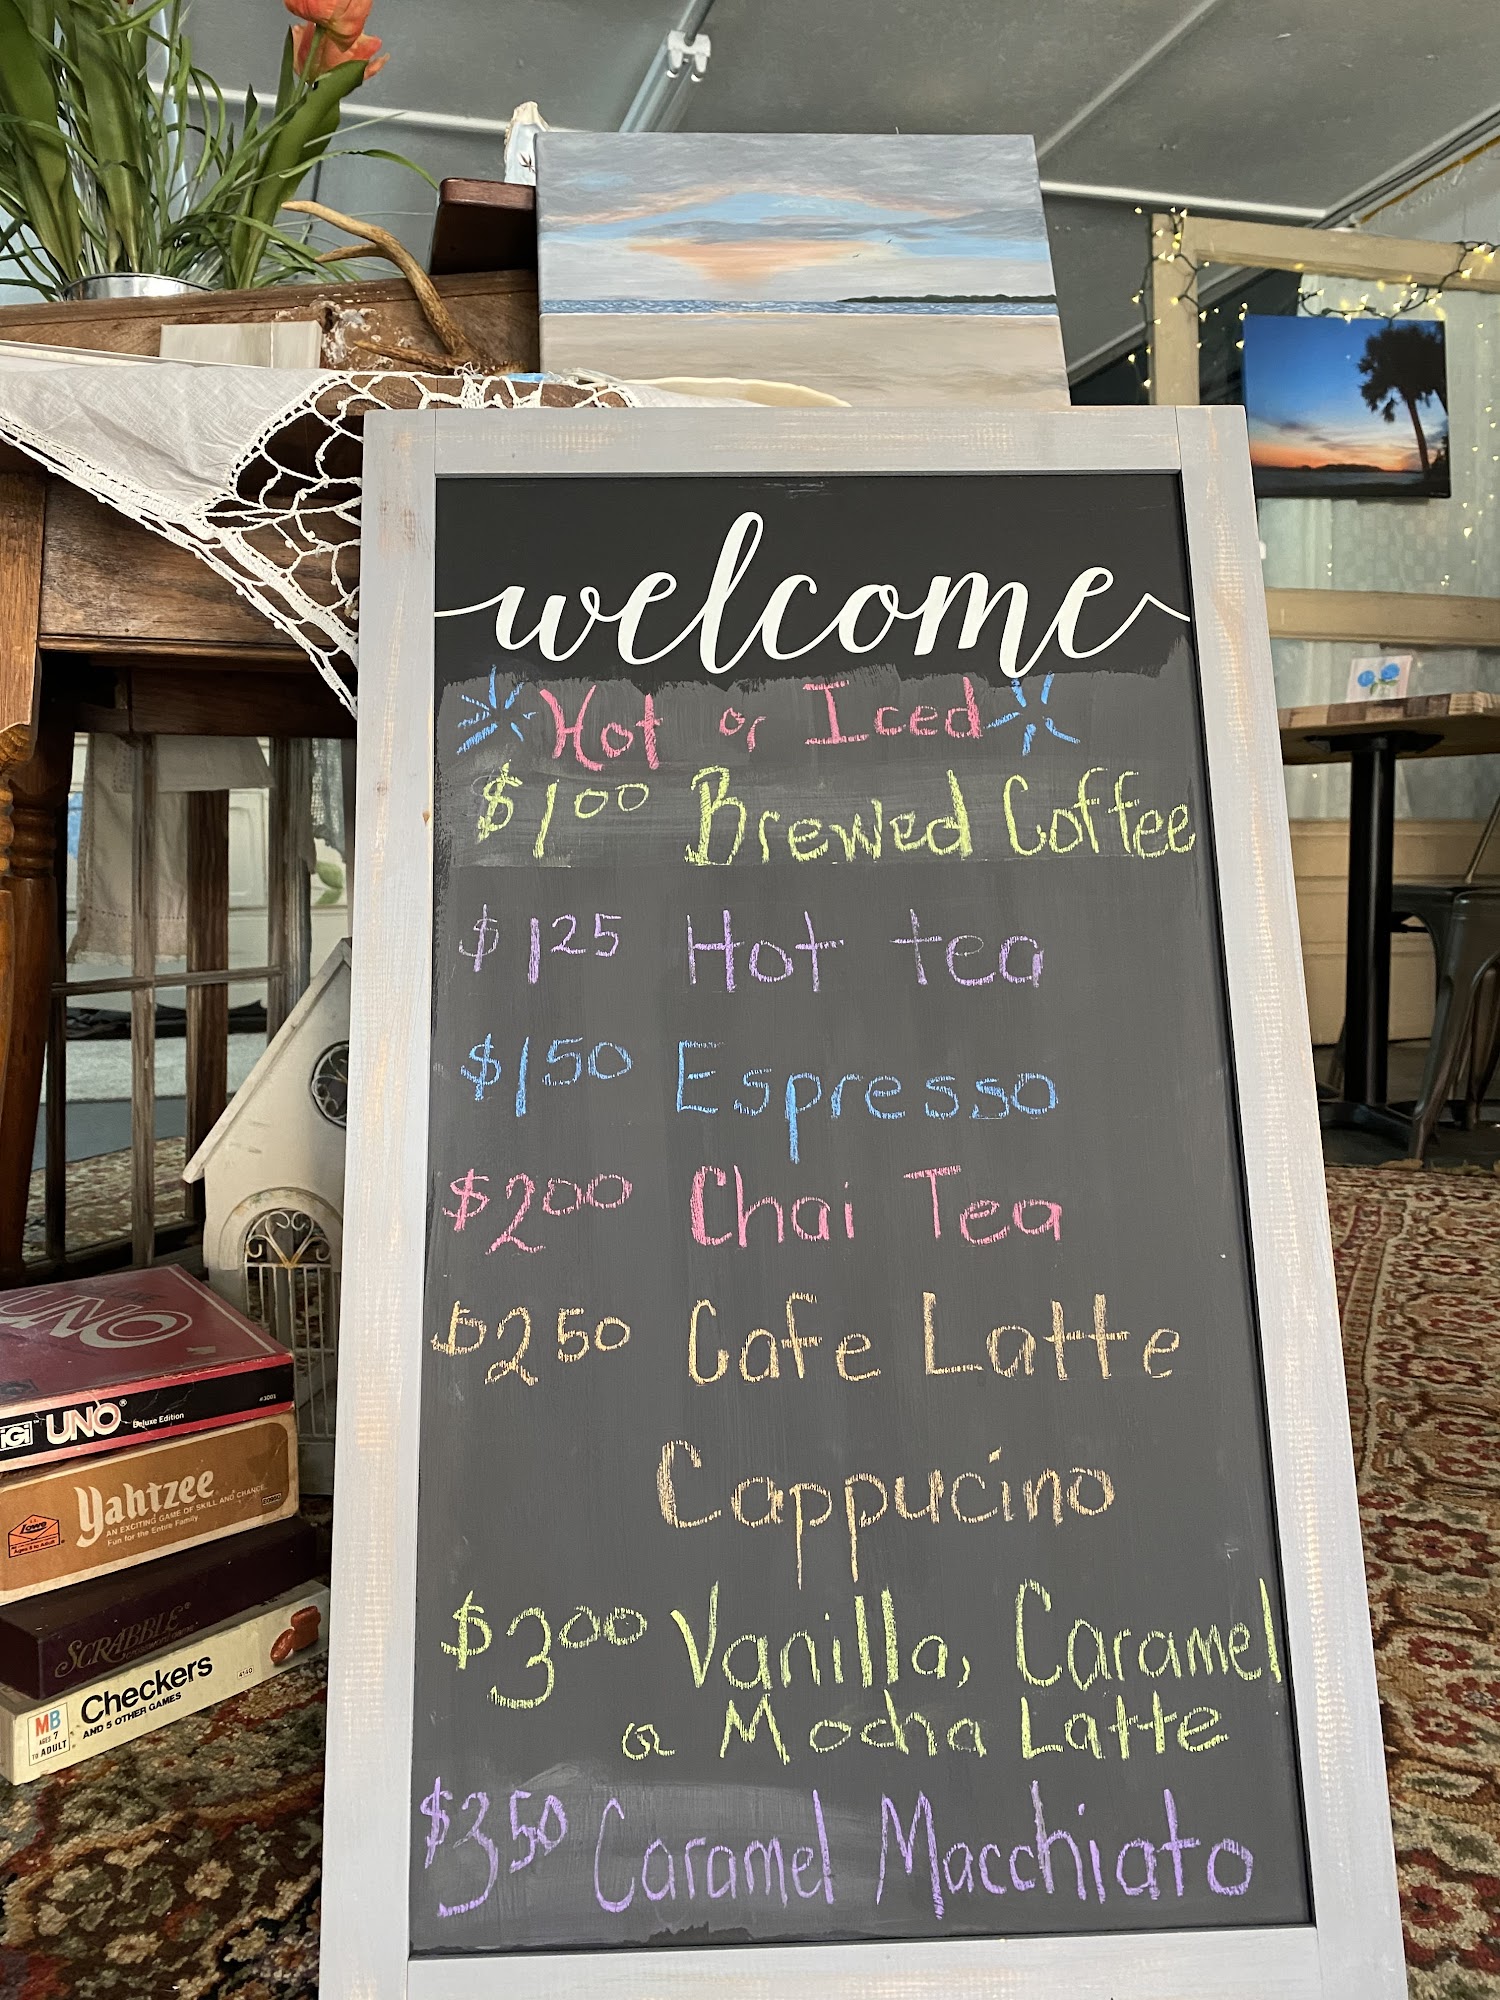 welcome
Hot or Iced
$1.00 Brewed Coffee
$1.25 Hot tea
$1.50 Espresso
$2.00 Chai Tea
$2.50 Cafe Latte
Cappucino
$3.00 Vanilla, Caramel
or Mocha Latte
$3.50 Caramel Macchiato
UNO
iGi UNO® Deluxe Edition #3001
Yahtzee
AN EXCITING GAME OF SKILL AND CHANCE
Fun for the Entire Family
Lowe
Ages 8 to Adult
SCRABBLE®
MB
AGES 7
TO ADULT
Checkers
AND 5 OTHER GAMES
4140